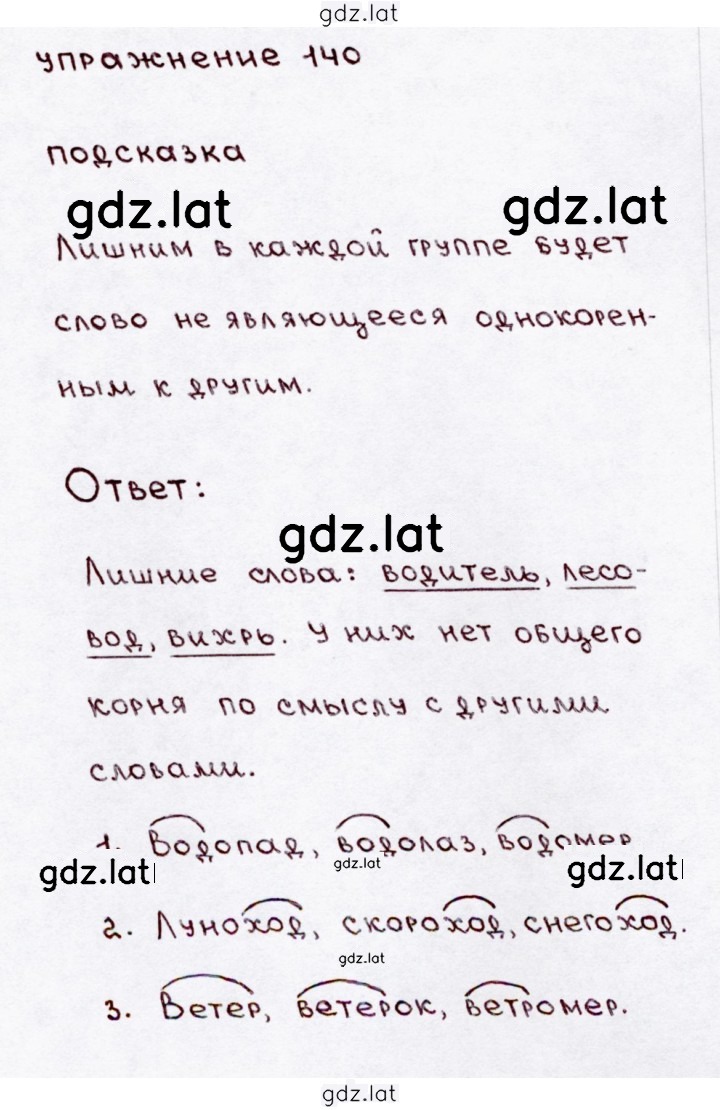 gdz.lat
упражнение 140
подсказка
gdz.lat gdz.lat
Лишним в каждой группе будет
слово не являющееся однокорен-
ным к другим.
Ответ:
gdz.lat
Лишние слова: водитель, лесо-
вод, вихрь. У них нет общего
корня по смыслу с другими
словами.
1. Водопад, водолаз, водомер
gdz.lat gdz.lat gdz.lat
2. Луноход, скороход, снегоход.
gdz.lat
3. Ветер, ветерок, ветромер.
gdz.lat